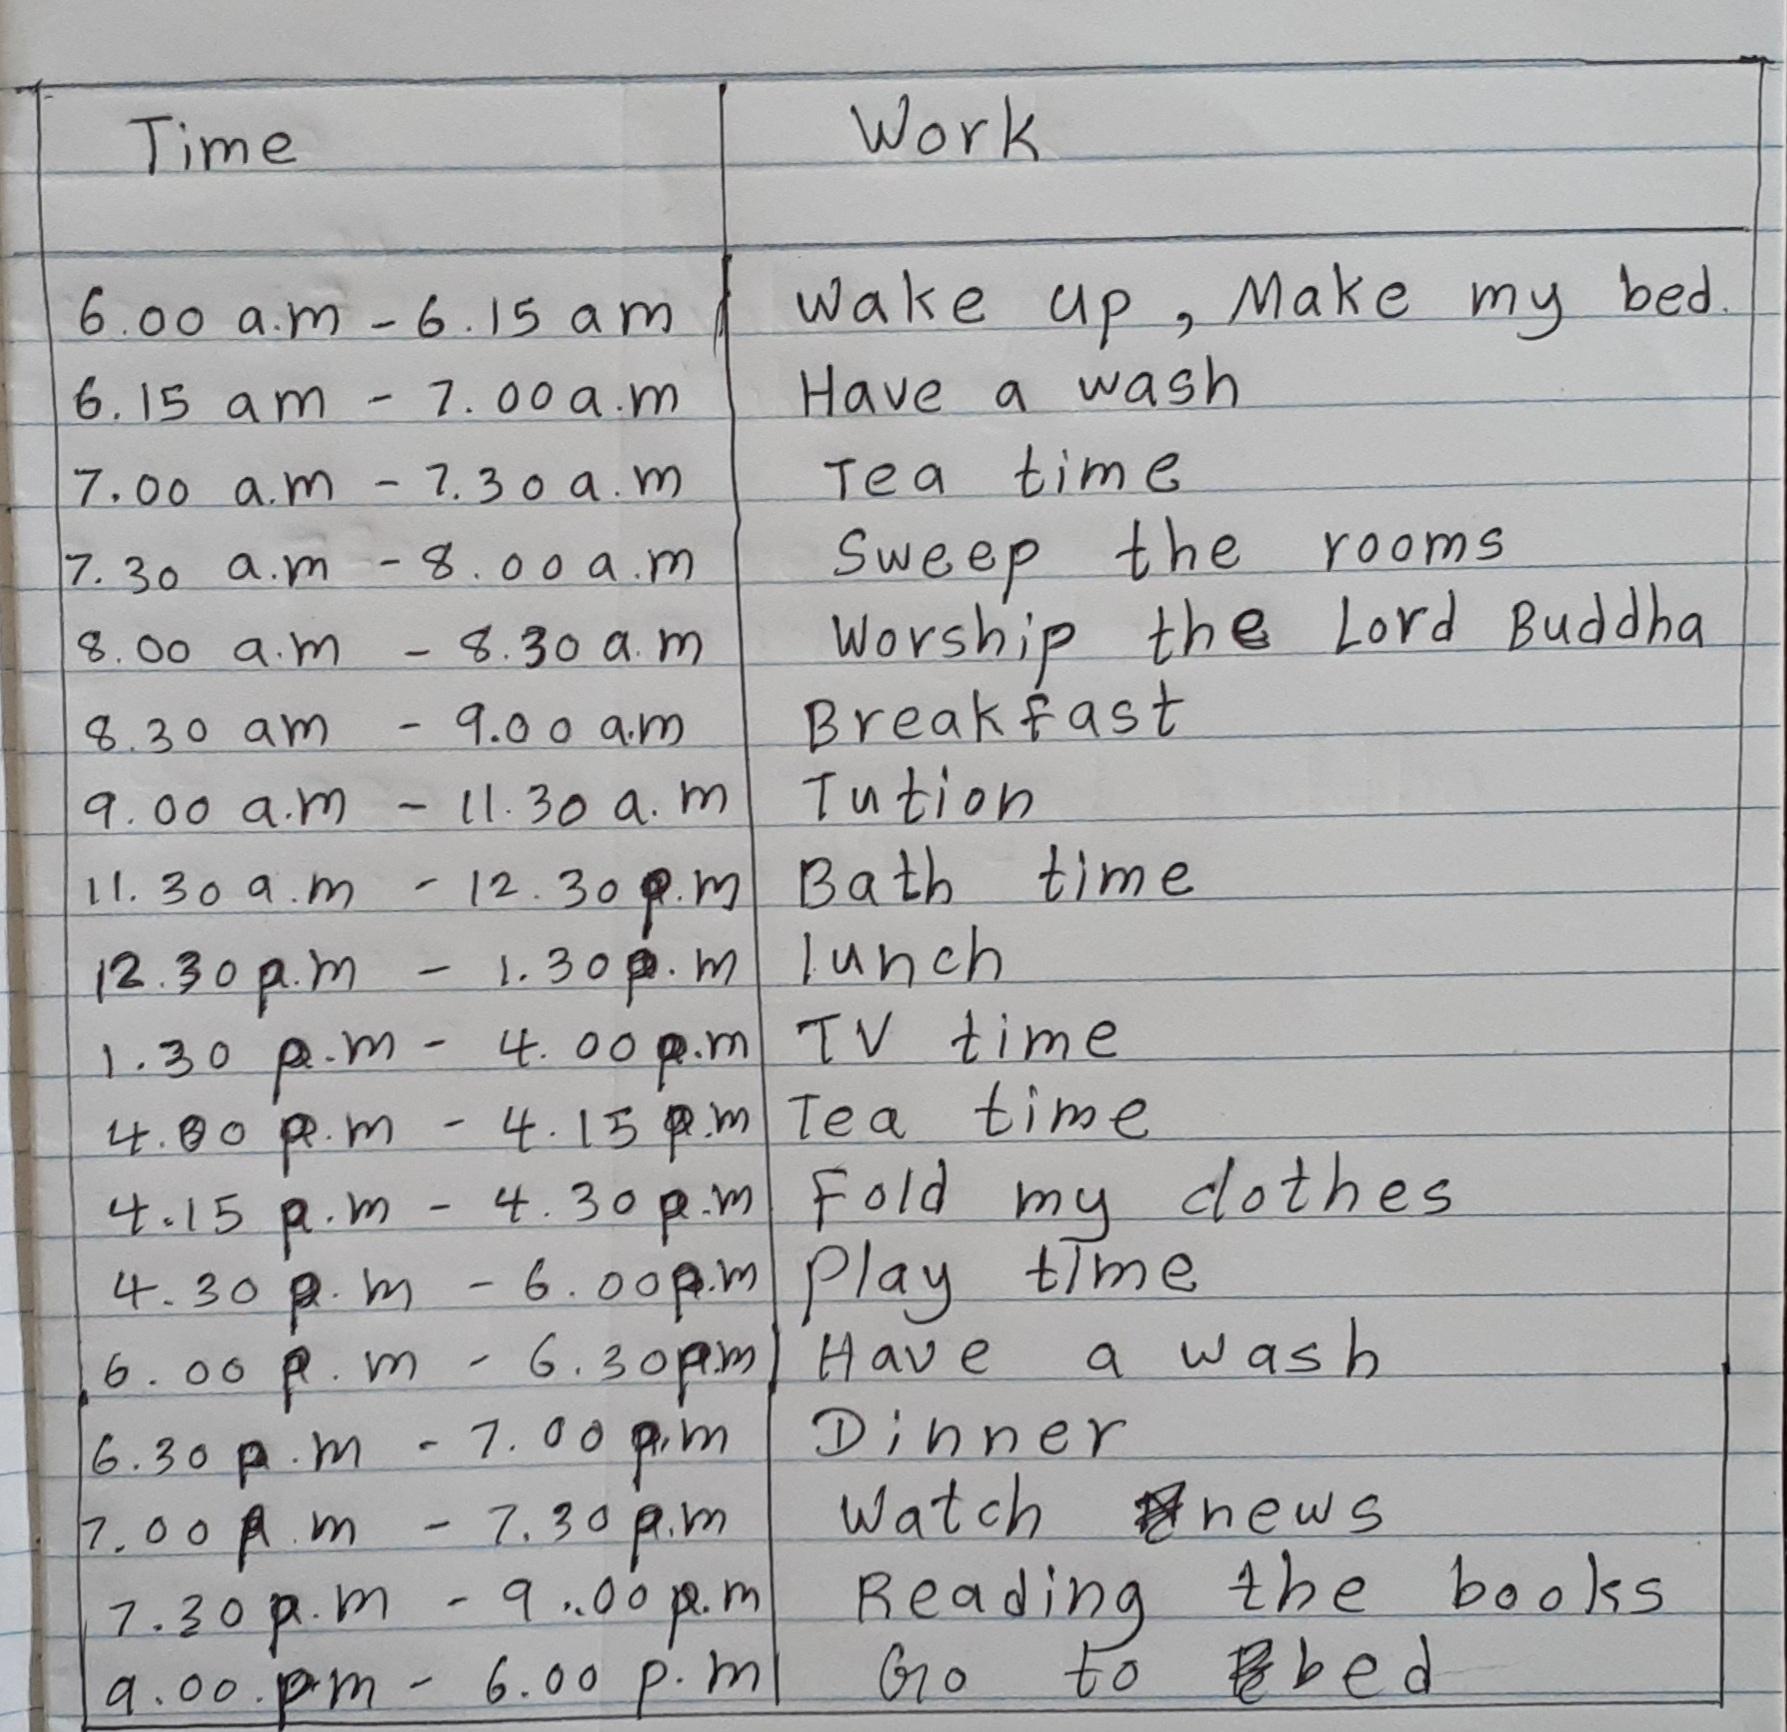 Time Work
6.00 a.m - 6.15 am Wake up, Make my bed.
6.15 am - 7.00 a.m Have a wash
7.00 a.m - 7.30 a.m Tea time
7.30 a.m - 8.00 a.m Sweep the rooms
8.00 a.m - 8.30 a.m Worship the Lord Buddha
8.30 am - 9.00 a.m Breakfast
9.00 a.m - 11.30 a.m Tution
11.30 a.m - 12.30 p.m Bath time
12.30 p.m - 1.30 p.m lunch
1.30 p.m - 4.00 p.m TV time
4.00 p.m - 4.15 p.m Tea time
4.15 p.m - 4.30 p.m Fold my clothes
4.30 p.m - 6.00 p.m Play time
6.00 p.m - 6.30 p.m Have a wash
6.30 p.m - 7.00 p.m Dinner
7.00 p.m - 7.30 p.m Watch news
7.30 p.m - 9..00 p.m Reading the books
9.00.pm - 6.00 p.m Go to bed